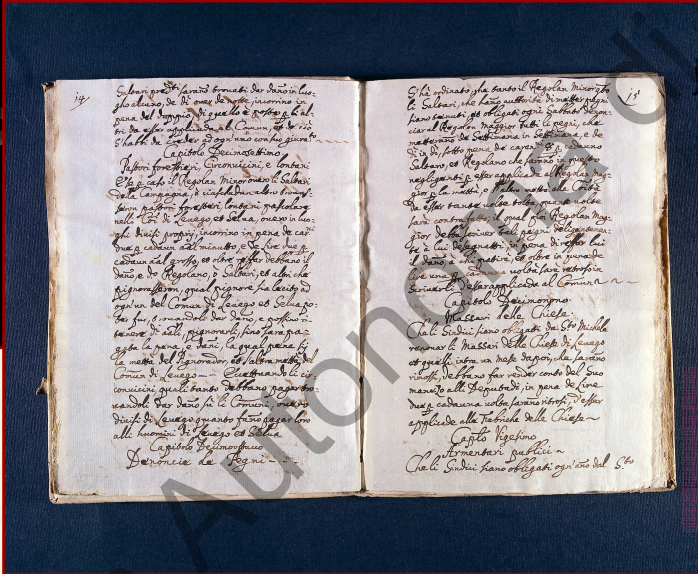 14
Saltari predti saranò trovati dar dano in luo-
gho alcuno, de dì over de notte, incorrino in
pena del doppio di quello è posto p li al-
tri da esser applicada al Comun, et de ciò
s'habbi da creder ad ogn'uno con suo giurato
Capitolo Decimosettimo
Pastori forestieri Circonvicini, e lontani
Che p caso il Regolan Minor over li Saltari
della Campagna, ò ciascadun altro trovas-
seron pastori forestieri lontani pascolare
nelli Cor di Levego et Selva, overo in luo-
ghi divisi proprij, incorrino in pena de car
due p cadauna al minutto, e de lire due p
cadauna al grosso, et oltre esser debbano il
dano, e do Regolano, ò Saltari, et altri che
pignorasseron, qual pignore sia licito ad
ogn'un del Comun di Levego et Selva po-
ter far, trovandoli dar dano, e possino ri-
tenere di dtti pignorarli, sino sarà pa-
gata la pena, e dani, la qual pena sij
la mettà del Pignorador, et l'altra mettà del
Comun di Levego Eccettuando li cir-
convicini, quali tanto debbano pagar tro-
vandoli dar dano sù li Comuni, overo
divisi di Levego quanto fano pagar loro
alli huomini di Levego et Selva
Capitolo Decimoottavo
Denoncie de Pegni
15
S'hà ordinato, che tanto il Regolan Minor qto
li Saltari, che hano auttorità di metter pegni
siano tenuti, et obligati ogni Sabbato denon-
ciar al Regolan maggior tutti li pegni, che
metterano da Settimana in Settimana, e de
ciò di sotto pena de
Saltaro, et Regolano che sarano in questo
negligenti p esser applicada al Regolan Mag-
gior p la mettà, e l'altra mettà alla Corte
da esser tante volte tolta quante volte
sarà contrafatto: il qual poi Regolan Mag-
gior debba scriver tali pegni diligentemen-
te à lui designatti in pena di esser lui
il dano à chi patirà, et oltre in pena de
lire una p cadauna volta sarà retroso in
scriverli d'esser applicada al Comun
Capitolo Decimonono
Massari delle Chiese
Che li Sindici siano obligati da Sto Michele
renovar li Massari delle Chiese di Levego
et quelli intra un mese dapoi, che sarano
rimossi, debbano far render conto del suo
maneggio alli Deputadi, in pena de Lire
due p cadauna volta sarano ritrosi, d'esser
applicade alle Fabriche delle Chiese
Capitlo Vigesimo
Armentari publici
Che li Sindici siano obligati ogn'ano dal Sto
Autonoma di